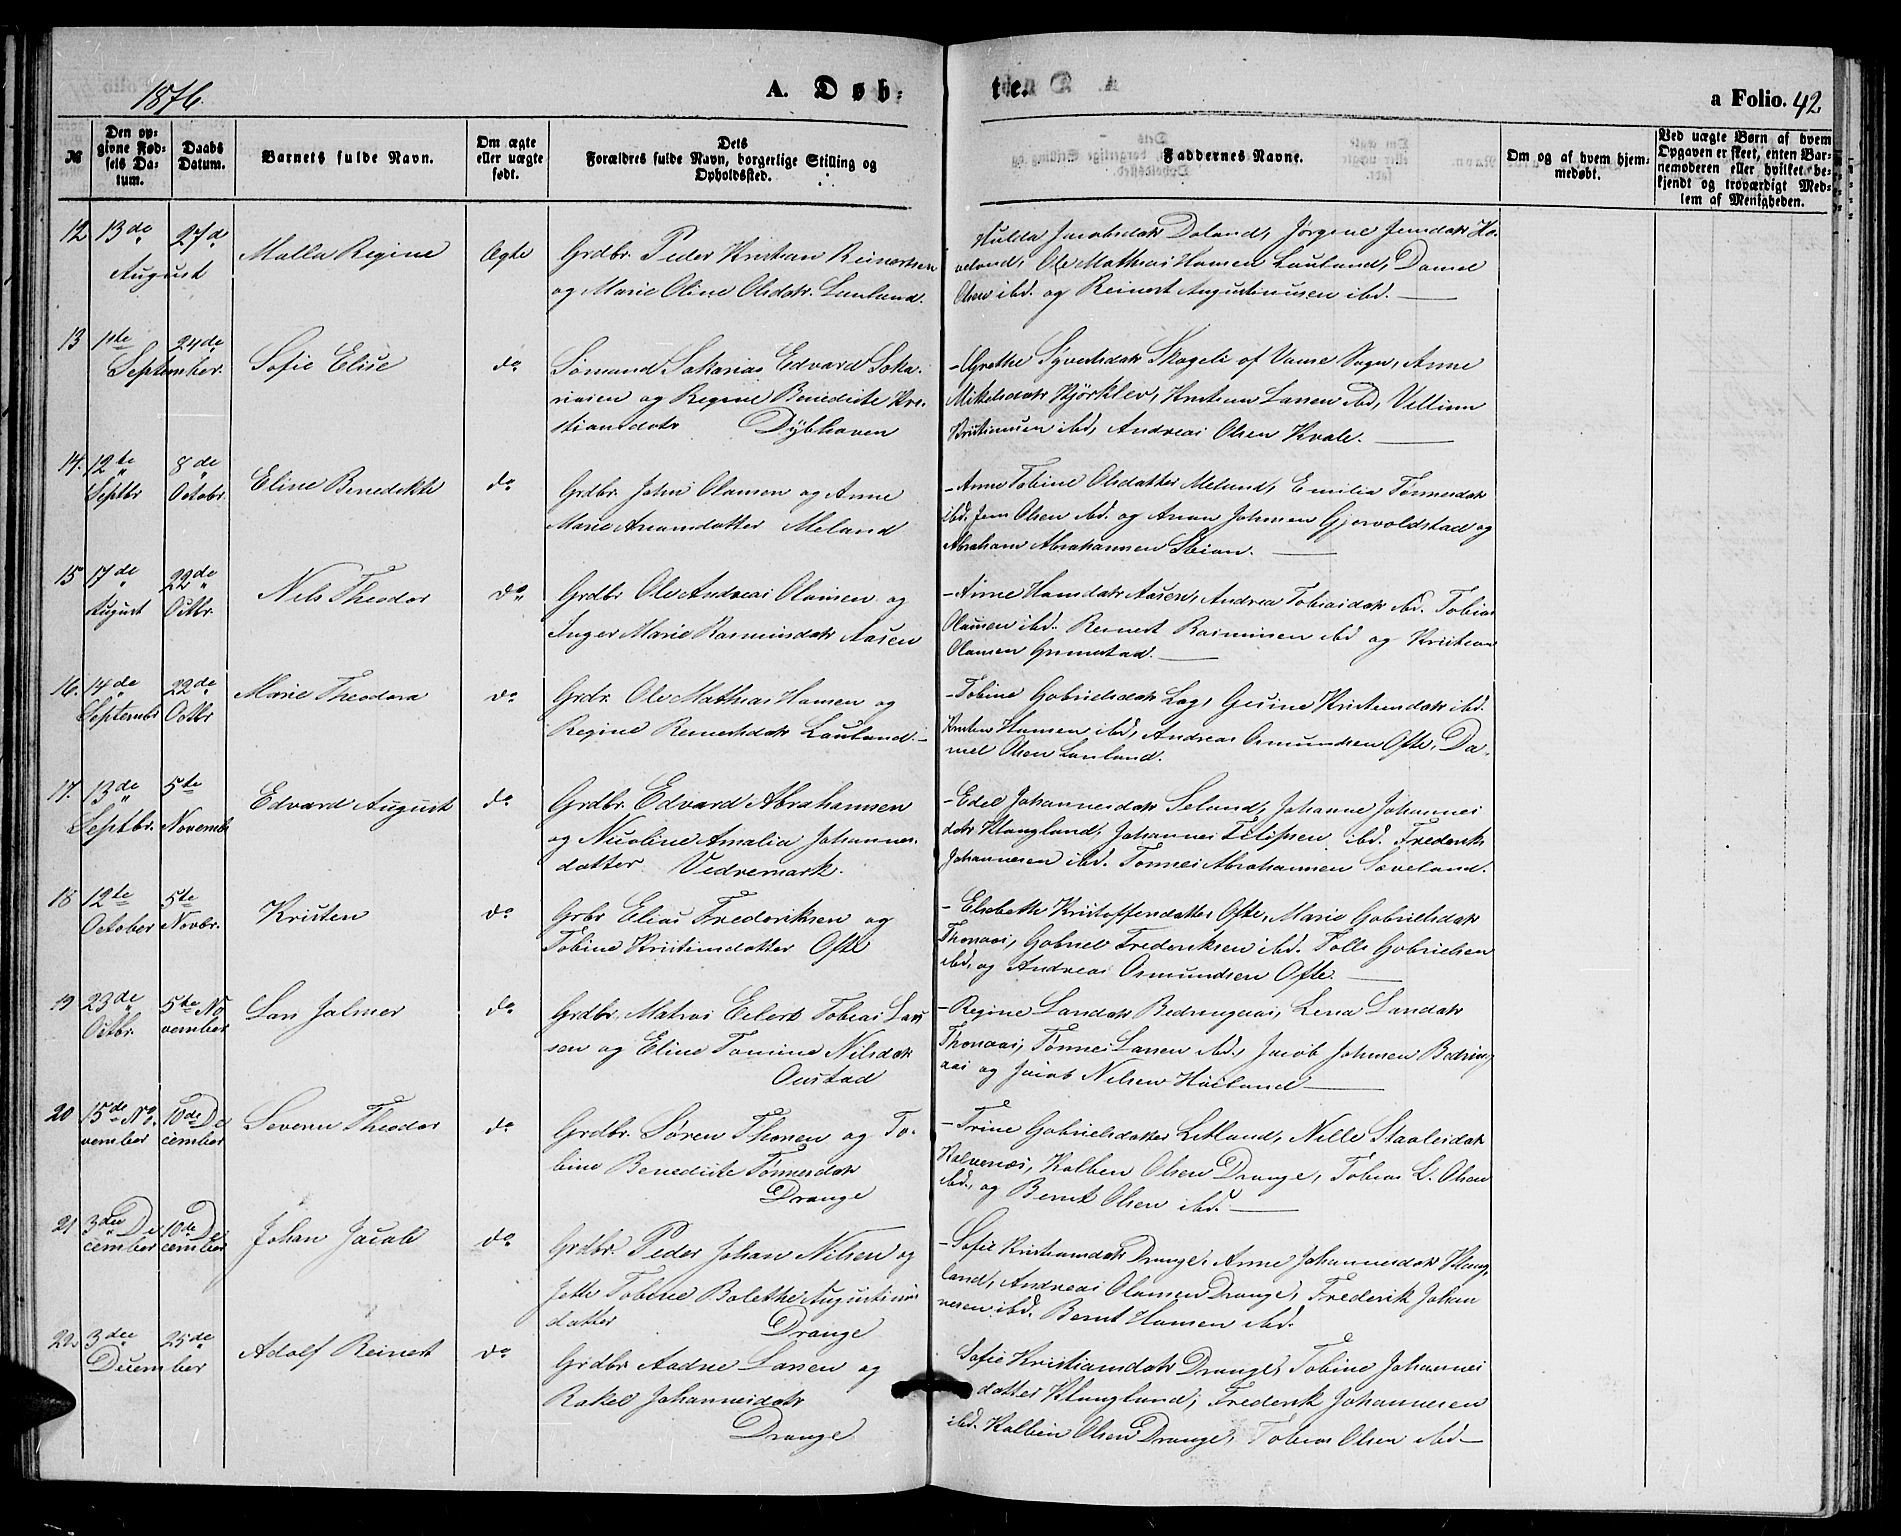 1876.
A. Døb-
te.
a Folio. 42
№
Den op-
givne Fød-
sels Da-
tum.
Daabs
Datum.
Barnets fulde Navn.
Om ægte
eller uægte
født.
Dets
Forældres fulde Navn, borgerlige Stilling og
Opholdssted.
Faddernes Navne.
Om og af hvem hjem-
medøbt.
Ved uægte Børn af hvem
Opgaven er skeet, enten Bar-
nemoderen eller hvilket be-
kjendt og troværdigt Med-
lem af Menigheden.
12 13de 27de
August
Malla Regine
Ægte
Grdbr. Peder Kristian Reinertsen
og Marie Oline Olsdatr. Lauland.
Hulda Jacobsdatr Doland, Jørgine Jensdatr Ho-
veland, Ole Mathias Hansen Lauland, Daniel
Olsen ibd. og Reinert Augustinusen ibd.
13 1ste 24de
September.
Sofie Elise
do
Sømand Sakarias Edvard Saka-
riasen og Regine Benedicte Kri-
stiansdatr Dybhaven
- Grethe Syvertsdatr Skageli af Vanse Sogn, Anne
Mikelsdatr Bjørklev, Kristian Larsen ibd, Vellum
Kristiansen ibd, Andreas Olsen Kvale.
14. 12te 8de
Septbr Octobr.
Eline Benedikte
do
Grdbr. John Olansen og Anne
Marie Anansdatter Meland
- Anne Tobine Olsdatter Meland, Emilia Tønnesdatr
ibd. Jens Olsen ibd. og Anan Johnsen Gjervoldstad og
Abraham Abrahamsen Stian.
15 17de 22de
August Octbr.
Nils Theodor
do
Grdbr Ole Andreas Olansen og
Inger Marie Rasmusdatr Aasen
- Anne Hansdatr Aasen, Andrea Tobiasdatr ibd. Tobias
Olausen ibd. Reinert Rasmussen ibd og Kristian
Olausen Grimestad.
16. 14de 22de
Septembr Octbr
Marie Theodora
do
Grdr. Ole Mathias Hansen og
Regine Reinertsdatr Lauland.
- Tobine Gabrielsdatr Log, Gusine Kristensdatr ibd.
Kristen Hansen ibd, Andreas Osmundsen Ofte, Da-
niel Olsen Lauland.
17. 13de 5te
Septbr. Novembr
Edvard August
do
Grdbr. Edvard Abrahamsen
og Nicoline Amalia Johannes-
datter Vedremark.
- Edel Johannesdatr Seland, Johanne Johannes
datr Klungland, Johannes Filipsen ibd. Frederik
Johannesen ibd. Tønnes Abrahamsen Sæveland.
18 12te 5te
October Novbr.
Kristen
do
Grbr Elias Frederiksen og
Tobine Kristensdatter Ofte
- Elsebeth Kristoffersdatter Ofte, Marie Gabrielsdatr
Thonaas, Gabriel Frederiksen ibd. Tolle Gabrielsen
ibd, og Andreas Osmundsen Ofte.
19 23de 5te No
Octbr. vember
Lars Jalmer
do
Grdbr. Matias Eilert Tobias Lar
sen og Eline Tomine Nilsdatr
Oustad
- Regine Larsdatr Bedringaas, Lena Larsdatr
Thonaas, Tønnes Larsen ibd., Jacob Johnsen Bedring
aas og Jacob Nilsen Høiland
20 15de No. 10de De
vember cember
Severin Theodor
do
Grdbr. Søren Thorsen og To-
bine Benedicte Tønnesdatr
Drange
- Trine Gabrielsdatter Litland, Nille Staalesdatr
Kalvenæs, Kolben Olsen Drange, Tobias L. Olsen
ibd., og Bernt Olsen ibd.
21 3die De 10de De
cember cember
Johan Jacob
do
Grdbr. Peder Johan Nilsen og
Jette Tobine Bolethe Augustinus
datter Drange
- Sofie Kristiansdatr Drange, Anne Johannesdatr Klung-
land, Andreas Olausen Drange, Frederik Johan
nesen ibd. Bernt Hansen ibd.
22. 3die 25de
December
Adolf Reinert
do
Grdbr Aadne Larsen og
Rakel Johannesdatr
Drange
Sofie Kristiansdatr Drange, Tobine Johannes
datter Klungland, Frederik Johannesen
ibd. Kolben Olsen Drange, Tobias Olsen ibd